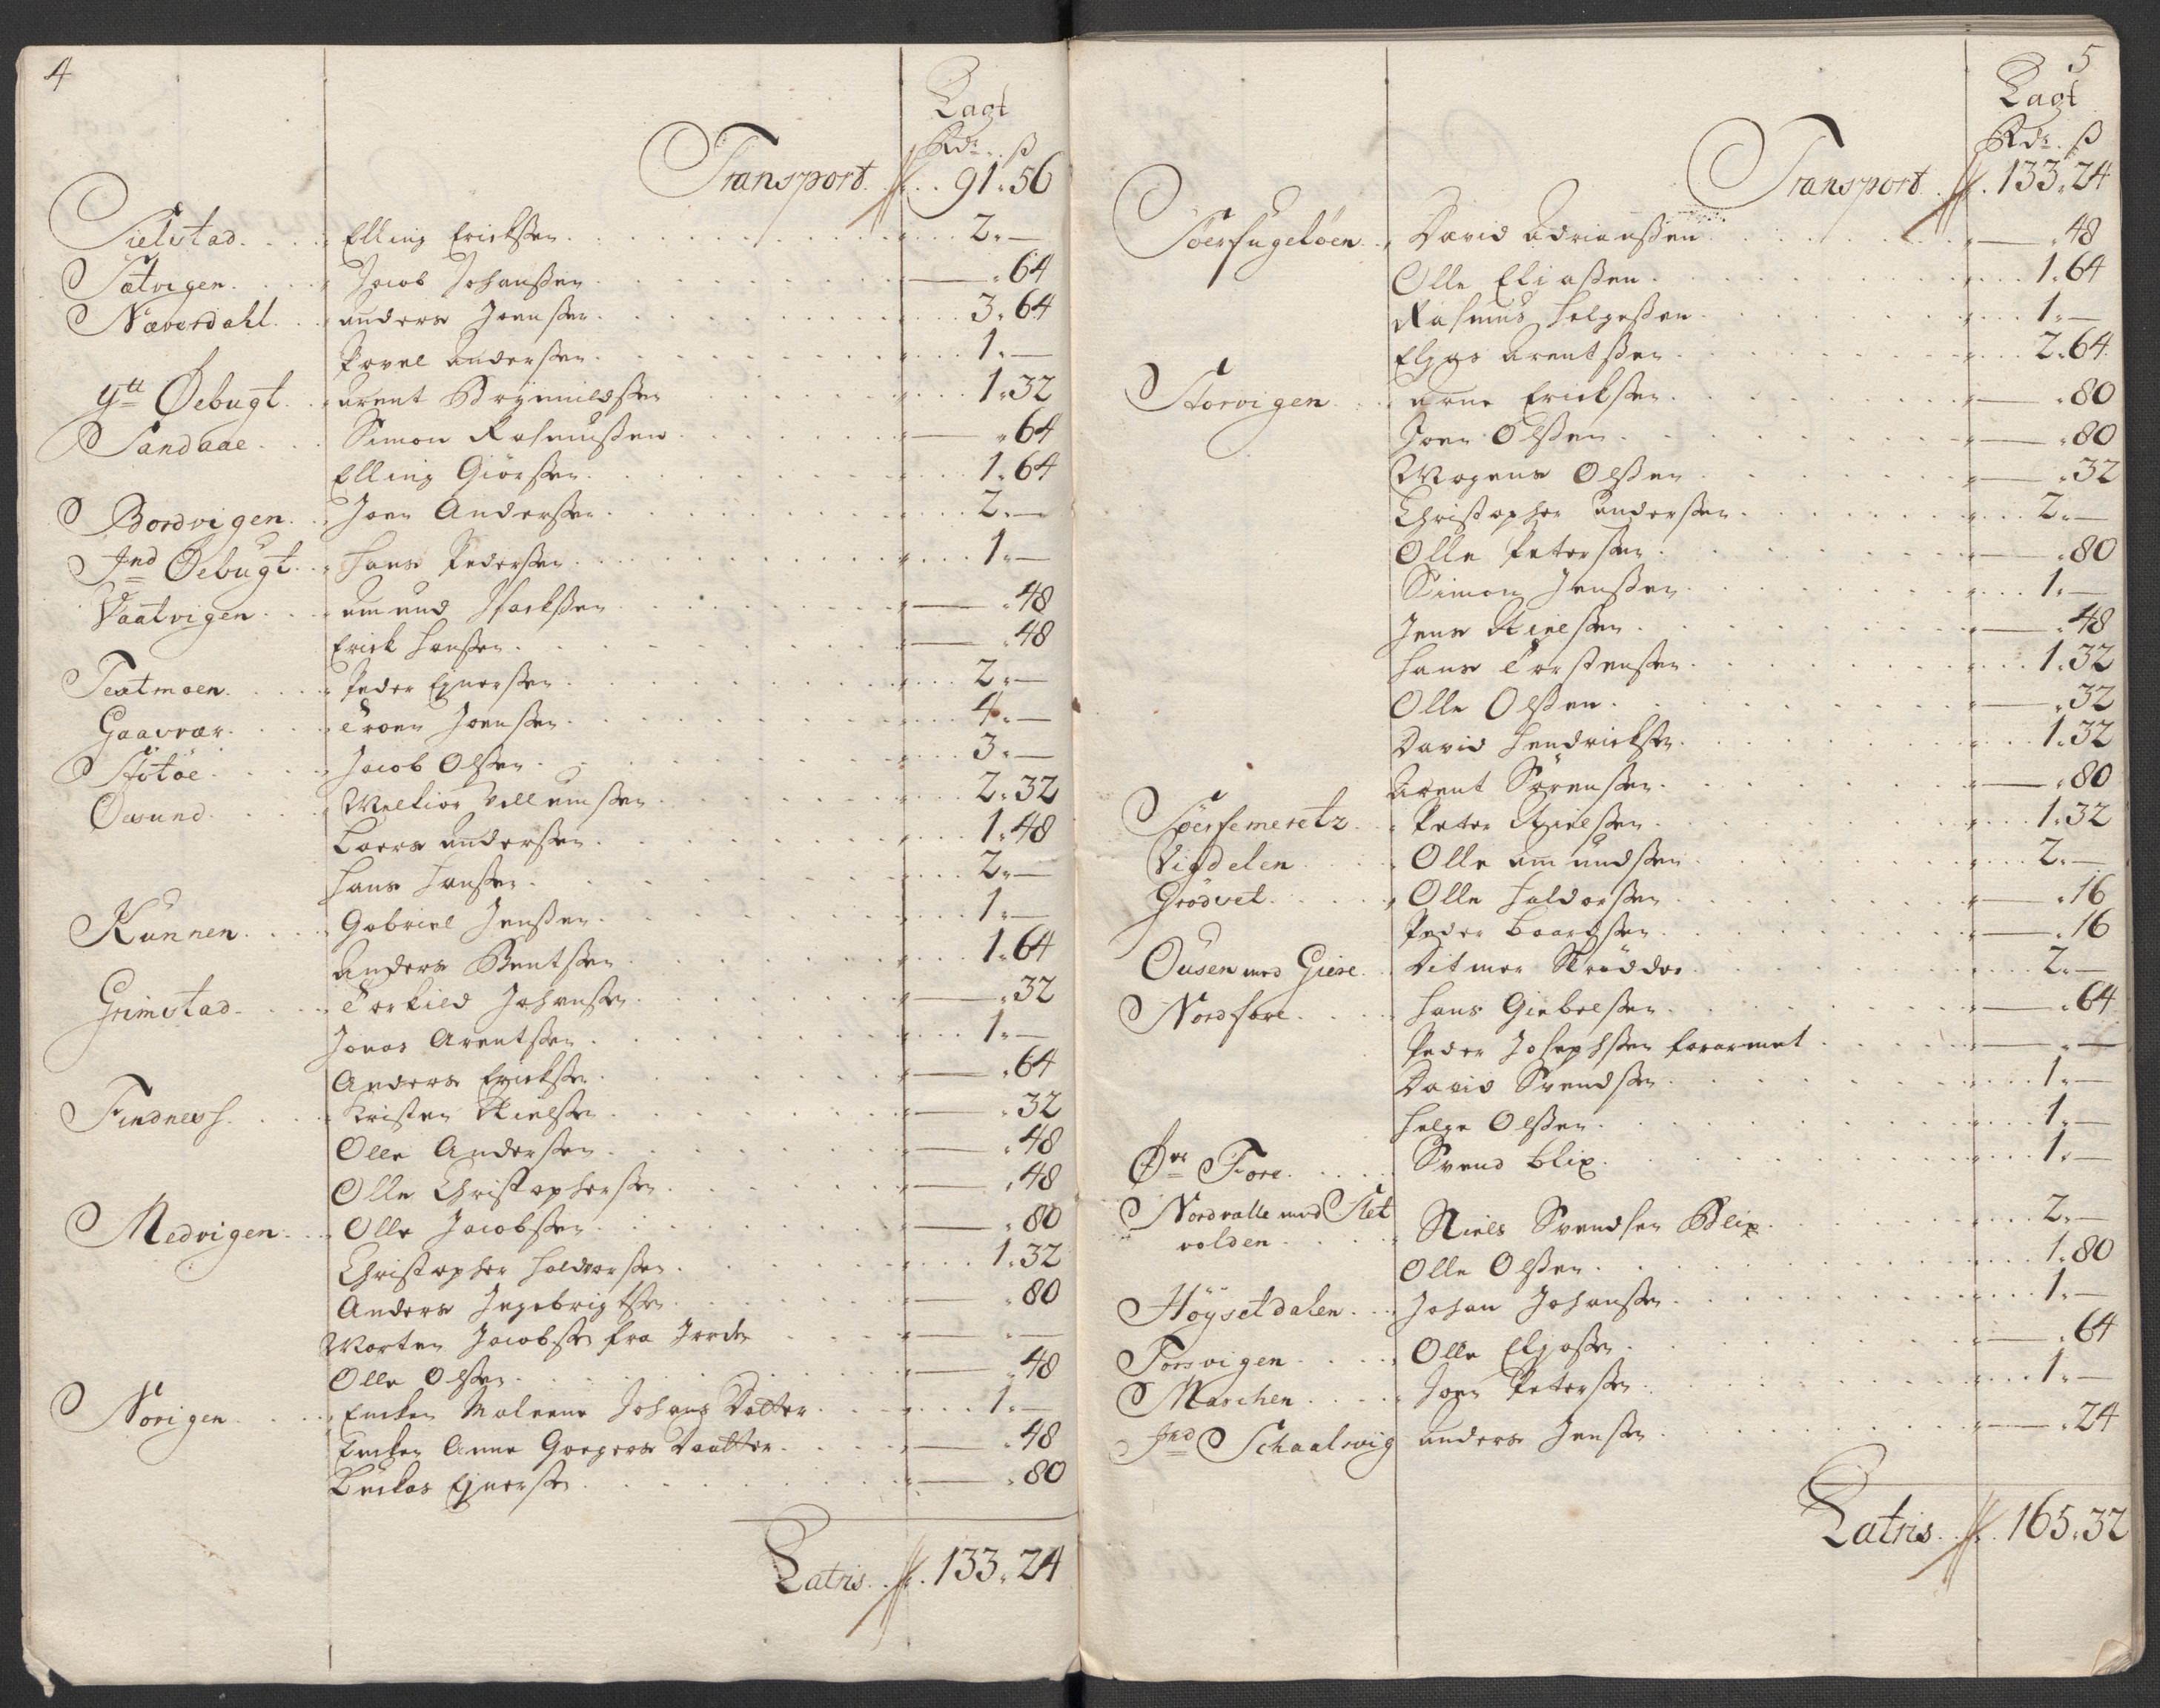 4
Lagt
Rdr. ß
Transport 91.56
Sielstad. Elling Ericksen. 2.—
Sætvigen. Jacob Johanßen. —.64
Næverdahl. Anders Joenßen. 3.64
Povel Anderßen. 1.—
ytt Øebugt. Arent Brynnildßen 1.32
Sandaae. Simon Rasmußen. —.64
Elling Giörßen. 1.64
Bordvigen. Joen Anderßen. 2.—
Ind Øebugt. Hans Pederßen. 1.—
Vaatvigen. Amund Isackßen. —.48
Erick Hanßen. —.48
Texmoen. Peder Ejnerßen. 2.—
Gaavær. Troen Joenßen. 4.—
Støtøe. Jacob Olßen. 3.—
Oesund. Melkior Villumßen. 2.32
Laers Anderßen. 1.48
Hans Hanßen. 2.—
Kunnen. Gabriel Jenßen. 1.—
Anders Bentßen. 1.64
Grimstad. Torkild Johanßen. —.32
Jonas Arentßen. 1.—
Anders Erickßen. —.64
Findness. Kristen Nielßen. —.32
Olle Anderßen. —.48
Olle Christopherßen. —.48
Medvigen. Olle Jacobßen. —.80
Christopher Haldorßen. 1.32
Anders Ingebrigtßen. —.80
Morten Jacobßen fra Jorden —.—
Olle Olßen. —.48
Norigen. Encken Maleene Johans Datter. 1.—
Encken Anne Goegers Daatter. —.48
Luckas Ejnerßen. —.80
Latris 133.24
5
Lagt
Rdr. ß
Transport 133.24
Söerfugelöen. David Adrianßen. —.48
Olle Eliaßen. 1.64
Rasmus Helgeßen. 1.—
Elias Arentßen. 2.64
Storvigen. Arne Erickßen. —.80
Joen Olßen. —.80
Mogens Olßen. —.32
Christopher Anderßen. 2.—
Olle Peterßen. —.80
Simon Jenßen. 1.—
Jens Nielßen. —.48
Hans Torstenßen. 1.32
Olle Olßen. —.32
David Hendrickßen. 1.32
Arent Sörenßen. —.80
Söerfemeretz. Peter Nielßen. 1.32
Vigdelen. Olle Amundßen. 2.—
Grödvet. Olle Haldorßen. —.16
Peder Baardßen. —.16
Ousen med Giere. Ditmer Skrædder. 2.—
Nordfore. Hans Giebelßen. —.64
Peder Josephßen forarmet —.—
David Svendßen. 1.—
Helge Olßen. 1.—
Ør Fore. Svend Blix. 1.—
Nordvalle med Slet
volden. Niels Svendsen Blix. 2.—
Olle Olßen. 1.80
Höysetdalen. Johan Johanßen. 1.—
Forsvigen. Olle Eljaßen. —.64
Marchen. Joen Peterßen. 1.—
Ind Schaalsvig Anders Jenßen. —.24
Latris 165.32